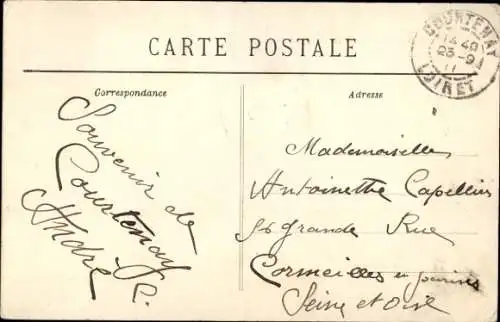 CARTE POSTALE
COURTENAY
14 40
23-9
11
LOIRET
Correspondance
Adresse
Souvenir de
Courtenay
André
Mademoiselle
Antoinette Capellier
Grande Rue
Cormeilles en parisis
Seine et Oise